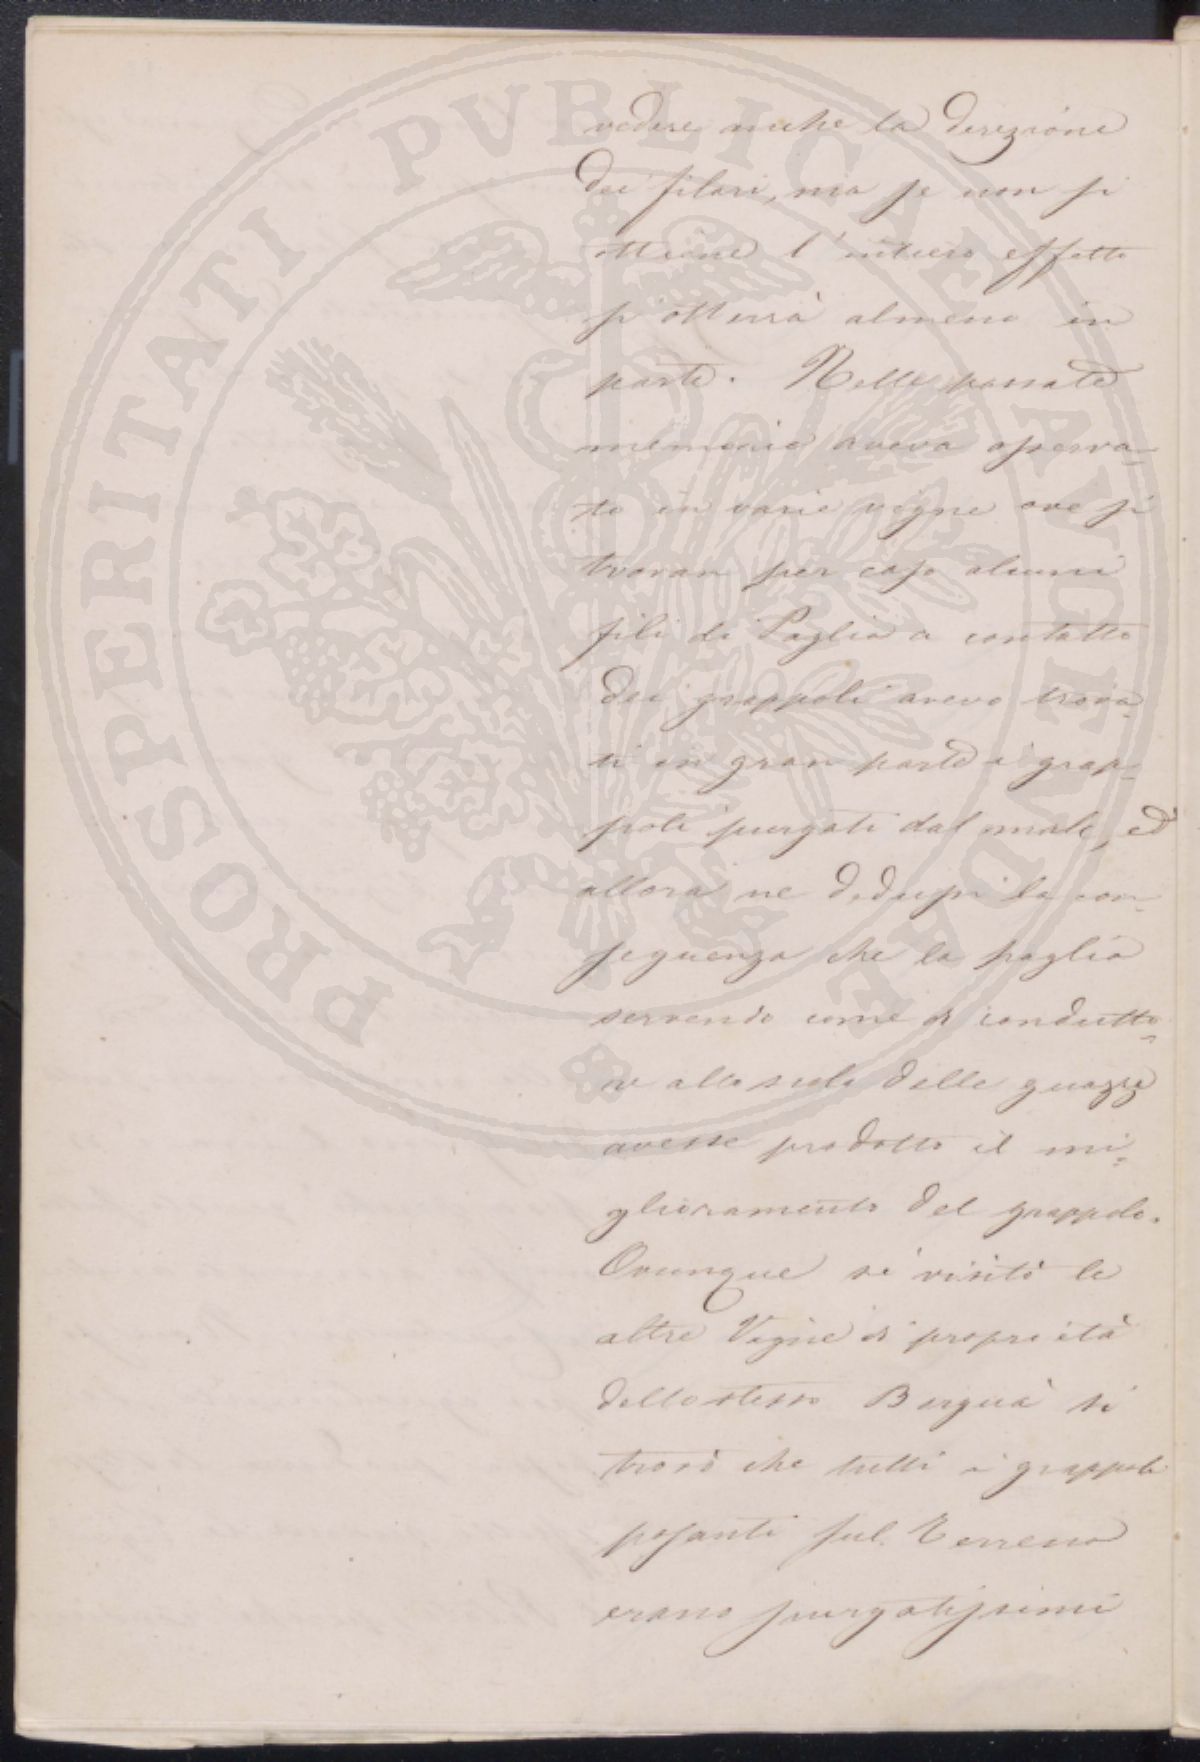 vedere anche la direzione
dei filari, ma se non si
ottiene l'intiero effetto
si otterrà almeno in
parte. Nelle passate
memorie aveva osserva-
to in varie vigne ove si
trovan per caso alcuni
fili di Paglia a contatto
dei grappoli avevo trova-
ti in gran parte i grap-
poli purgati dal male, ed
allora ne dedussi la con-
seguenza che la paglia
servendo come di condutto-
re alla scolo delle guazze
avesse prodotto il mi-
glioramento del grappolo.
Ovunque si visitò le
altre Vigne di proprietà
dello stesso si
trovò che tutti i grappoli
posanti sul Terreno
erano purgatissimi
PROSPERITATI PVBLICAE AVGENDAE